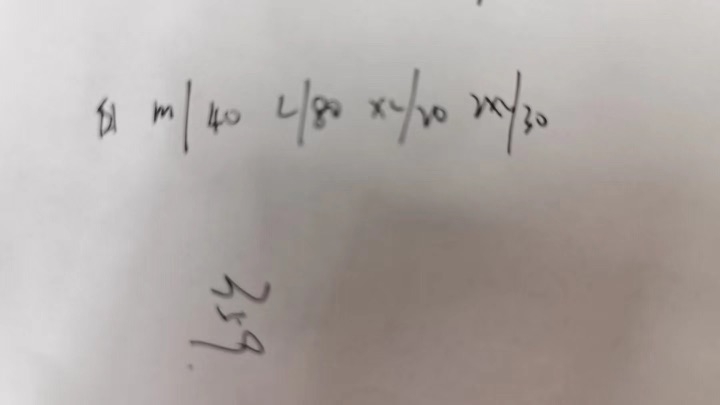 m/40 L/80 XL/20 2XL/30
359.